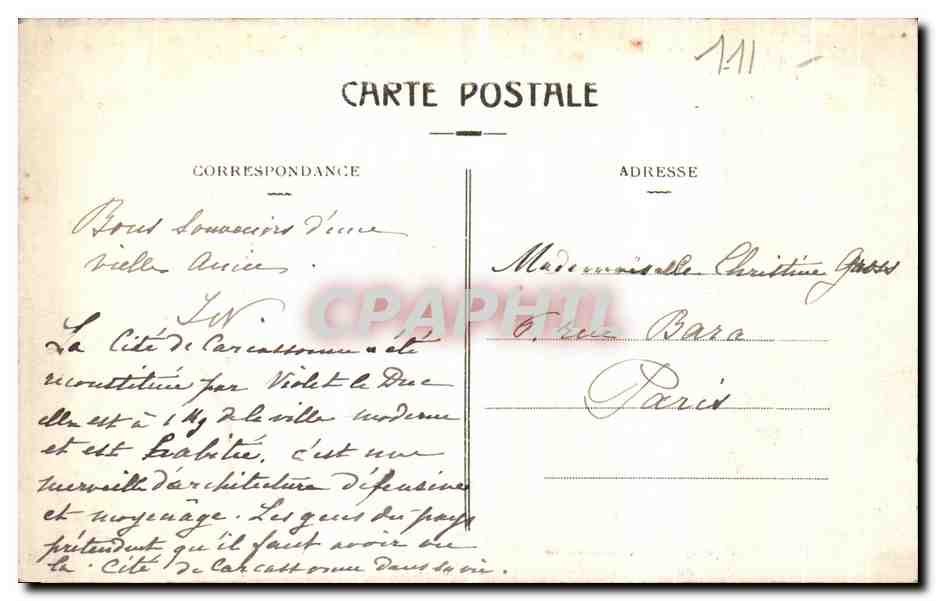 111 -
CARTE POSTALE
CORRESPONDANCE
ADRESSE
Bons Souvenirs d'une
vielle Amie.
La Cité de Carcassonne a été
reconstituée par Violet le Duc
elle est à 1 Kg de la ville moderne
et est habitée. c'est une
merveille d'architecture défensive
et moyenâge. Les gens du pays
prétendent qu'il faut avoir vu
la Cité de Carcassonne dans sa vie.
Mademoiselle Christine Gross
6. rue Bara
Paris
CPAPHIL